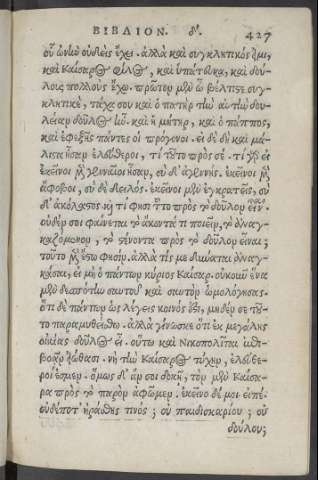 ΒΙΒΛΙΟΝ. δʹ. 427
οὗ ὠνὴν οὐδεὶς ἔχει. ἀλλὰ καὶ συγκλητικός εἰμι,
καὶ Καίσαρος φίλος, καὶ ὑπάτευκα, καὶ δού-
λους πολλοὺς ἔχω. πρῶτον μὲν ὦ βέλτιστε συγ-
κλητικὲ, τάχα σου καὶ ὁ πατὴρ τὴν αὐτὴν δου-
λείαν δοῦλος ἦν. καὶ ἡ μήτηρ, καὶ ὁ πάππος,
καὶ ἐφεξῆς πάντες οἱ πρόγονοι. εἰ δὲ δὴ καὶ μά-
λιστα ἦσαν ἐλεύθεροι, τί τοῦτο πρὸς σέ. τί γὰρ εἰ
ἐκεῖνοι μὲν γενναῖοι ἦσαν, σὺ δʼ ἀγεννής. ἐκεῖνοι μὲν
ἄφοβοι, σὺ δὲ δειλός. ἐκεῖνοι μὲν ἐγκρατεῖς, σὺ
δʼ ἀκόλαστος. καὶ τί φησι τοῦτο πρὸς τὸ δοῦλον εἶναι.
οὐδέν σοι φαίνεται τὸ ἄκοντά τι ποιεῖν, τὸ ἀναγ-
καζόμενον, τὸ στένοντα πρὸς τὸ δοῦλον εἶναι;
τοῦτο μὲν ἔστω φησίν. ἀλλὰ τίς με δύναται ἀναγ-
κάσαι, εἰ μὴ ὁ πάντων κύριος Καῖσαρ. οὐκοῦν ἕνα
μὲν δεσπότην σαυτοῦ καὶ σαυτὸν ὡμολόγησας.
ὅτι δὲ πάντων ὡς λέγεις κοινός ἐστι, μηδέν σε τοῦ-
το παραμυθείσθω. ἀλλὰ γίνωσκε ὅτι ἐκ μεγάλης
οἰκίας δοῦλος εἶ. οὕτω καὶ Νικοπολῖται ἐπι-
βοᾷν εἰώθασι. νὴ τὴν Καίσαρος τύχην, ἐλεύθε-
ροί ἐσμεν. ὅμως δʼ ἄν σοι δοκῇ, τὸν μὲν Καίσα-
ρα πρὸς τὸ παρὸν ἀφῶμεν. ἐκεῖνο δέ μοι εἰπέ.
οὐδέποτʼ ἠράσθης τινός; οὐ παιδισκαρίου; οὐ
δούλου;